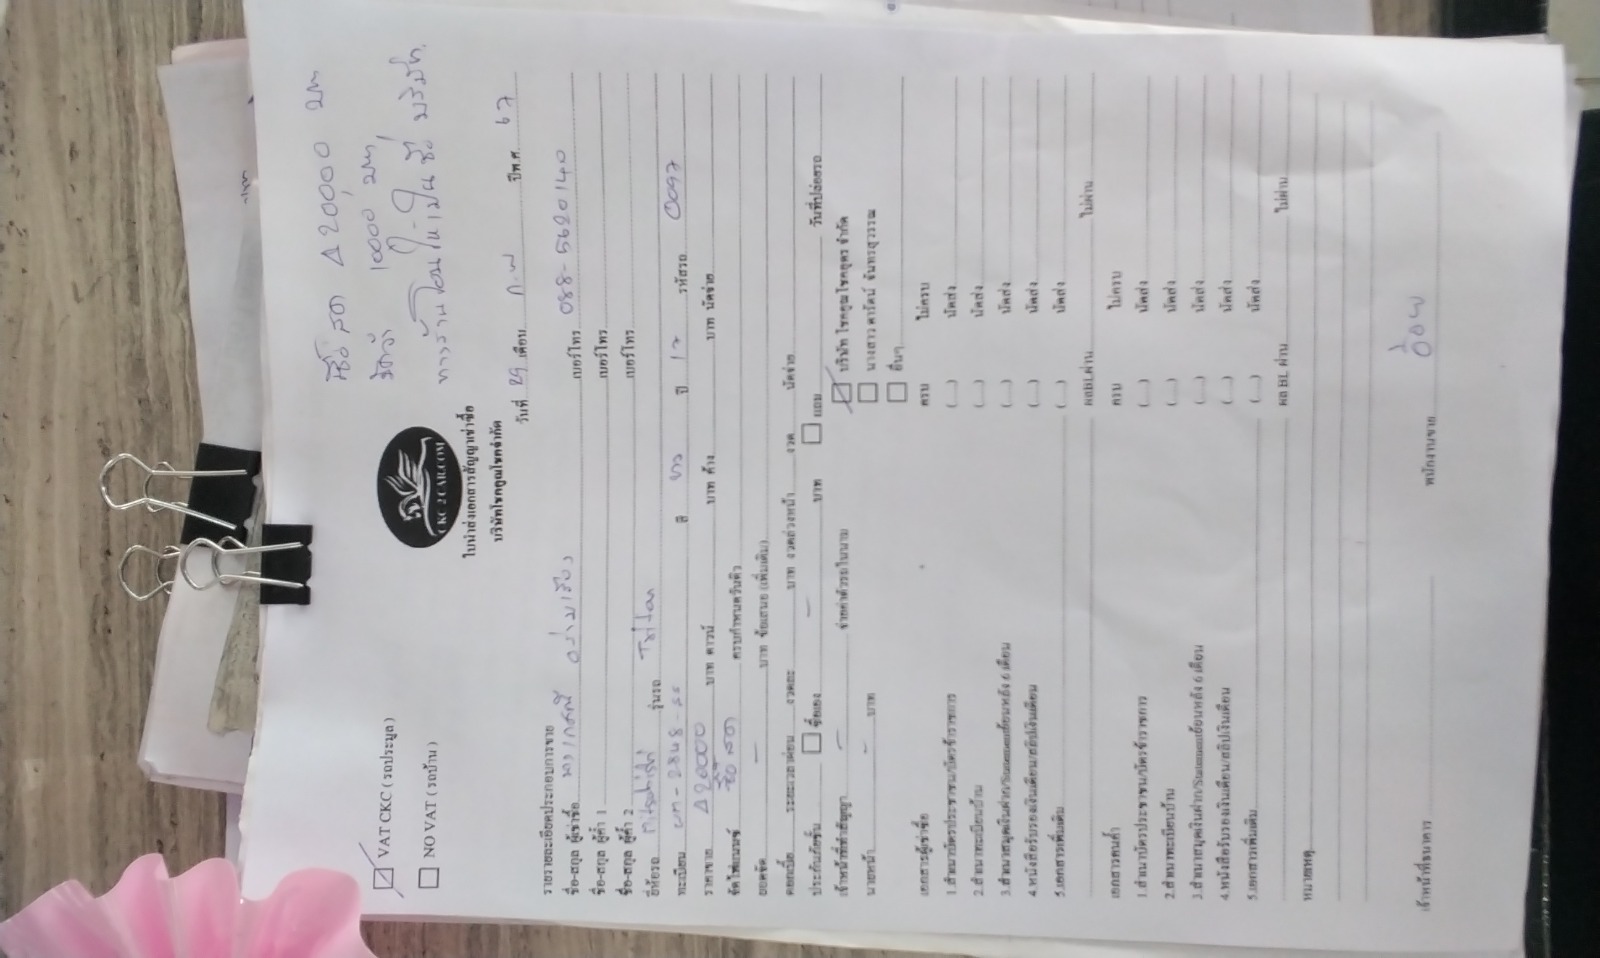 ซื้อสด 420,000 บาท
10000 บาท
VAT CKC ( รถประมูล )
NO VAT ( รถบ้าน )
CKC 2 CAR.COM
ใบนำส่งเอกสารสัญญาเช่าซื้อ
บริษัทโชคคูณโชคจำกัด
วันที่ 29 เดือน ก.พ ปีพ.ศ. 67
รายรายละเอียดประกอบการขาย
ชื่อ-สกุล ผู้เช่าซื้อ เบอร์โทร 088-5620140
ชื่อ-สกุล ผู้ค้ำ 1 เบอร์โทร
ชื่อ-สกุล ผู้ค้ำ 2 เบอร์โทร
ยี่ห้อรถ Mitsubishi รุ่นรถ Triton
ทะเบียน สี ขาว ปี 17 รหัสรถ 0097
ราคาขาย 420000 บาท ดาวน์ บาท ค้าง บาท นัดจ่าย
จัดไฟแนนซ์ ซื้อสด ครบกำหนดวันคิว
ยอดจัด - บาท ข้อเสนอ (เพิ่มเติม)
ดอกเบี้ย ระยะเวลาผ่อน งวดละ บาท งวดล่วงหน้า งวด นัดจ่าย
ประกันภัยชั้น ซื้อเอง - บาท แถม วันที่ปล่อยรถ
เจ้าหน้าที่ทำสัญญา - จ่ายค่าตัวรถในนาม บริษัท โชคคูณโชคคูตร จำกัด
นายหน้า - บาท นางสาว ดารัตน์ จันทรสุวรรณ
อื่นๆ
เอกสารผู้เช่าซื้อ ครบ ไม่ครบ
1.สำเนาบัตรประชาชน/บัตรข้าราชการ ( ) นัดส่ง
2.สำเนาทะเบียนบ้าน ( ) นัดส่ง
3.สำเนาสมุดเงินฝาก/Statementย้อนหลัง 6 เดือน ( ) นัดส่ง
4.หนังสือรับรองเงินเดือน/สลิปเงินเดือน ( ) นัดส่ง
5.เอกสารเพิ่มเติม ( ) นัดส่ง
ผลBLผ่าน ไม่ผ่าน
เอกสารคนค้ำ ครบ ไม่ครบ
1.สำเนาบัตรประชาชน/บัตรข้าราชการ ( ) นัดส่ง
2.สำเนาทะเบียนบ้าน ( ) นัดส่ง
3.สำเนาสมุดเงินฝาก/Statementย้อนหลัง 6 เดือน ( ) นัดส่ง
4.หนังสือรับรองเงินเดือน/สลิปเงินเดือน ( ) นัดส่ง
5.เอกสารเพิ่มเติม ( ) นัดส่ง
ผล BL ผ่าน ไม่ผ่าน
หมายเหตุ
เจ้าหน้าที่ธนาคาร พนักงานขาย